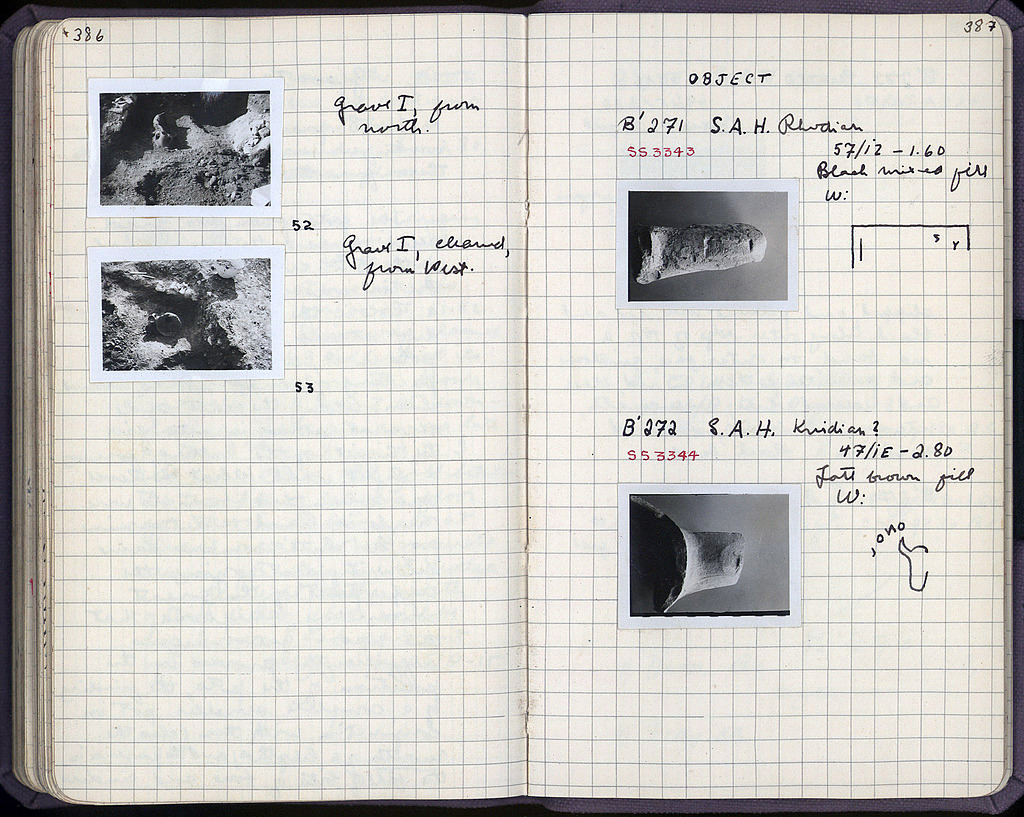 386
Grave I, from
north.
52
Grave I, cleaned,
from West.
53
387
OBJECT
B'271 S.A.H. Rhodian
SS 3343
57/ΙΖ - 1.60
Black mixed fill
W:
B'272 S.A.H. Knidian?
SS 3344
47/ΙΕ - 2.80
brown fill
W: